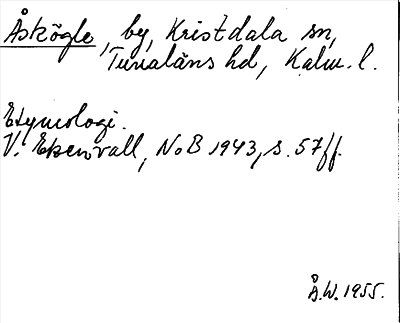 Åskögle, by, Kristdala sn,
Tunaläns hd, Kalm. l.
Etymologi.
V. Ekenvall, NoB 1943, s. 57ff.
Å.W. 1955.